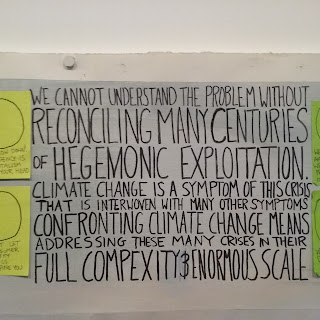 WE CANNOT UNDERSTAND THE PROBLEM WITHOUT
RECONCILING MANY CENTURIES
OF HEGEMONIC EXPLOITATION.
CLIMATE CHANGE IS A SYMPTOM OF THIS CRISIS
THAT IS INTERWOVEN WITH MANY OTHER SYMPTOMS
CONFRONTING CLIMATE CHANGE MEANS
ADDRESSING THESE MANY CRISES IN THEIR
FULL COMPEXITY & ENORMOUS SCALE